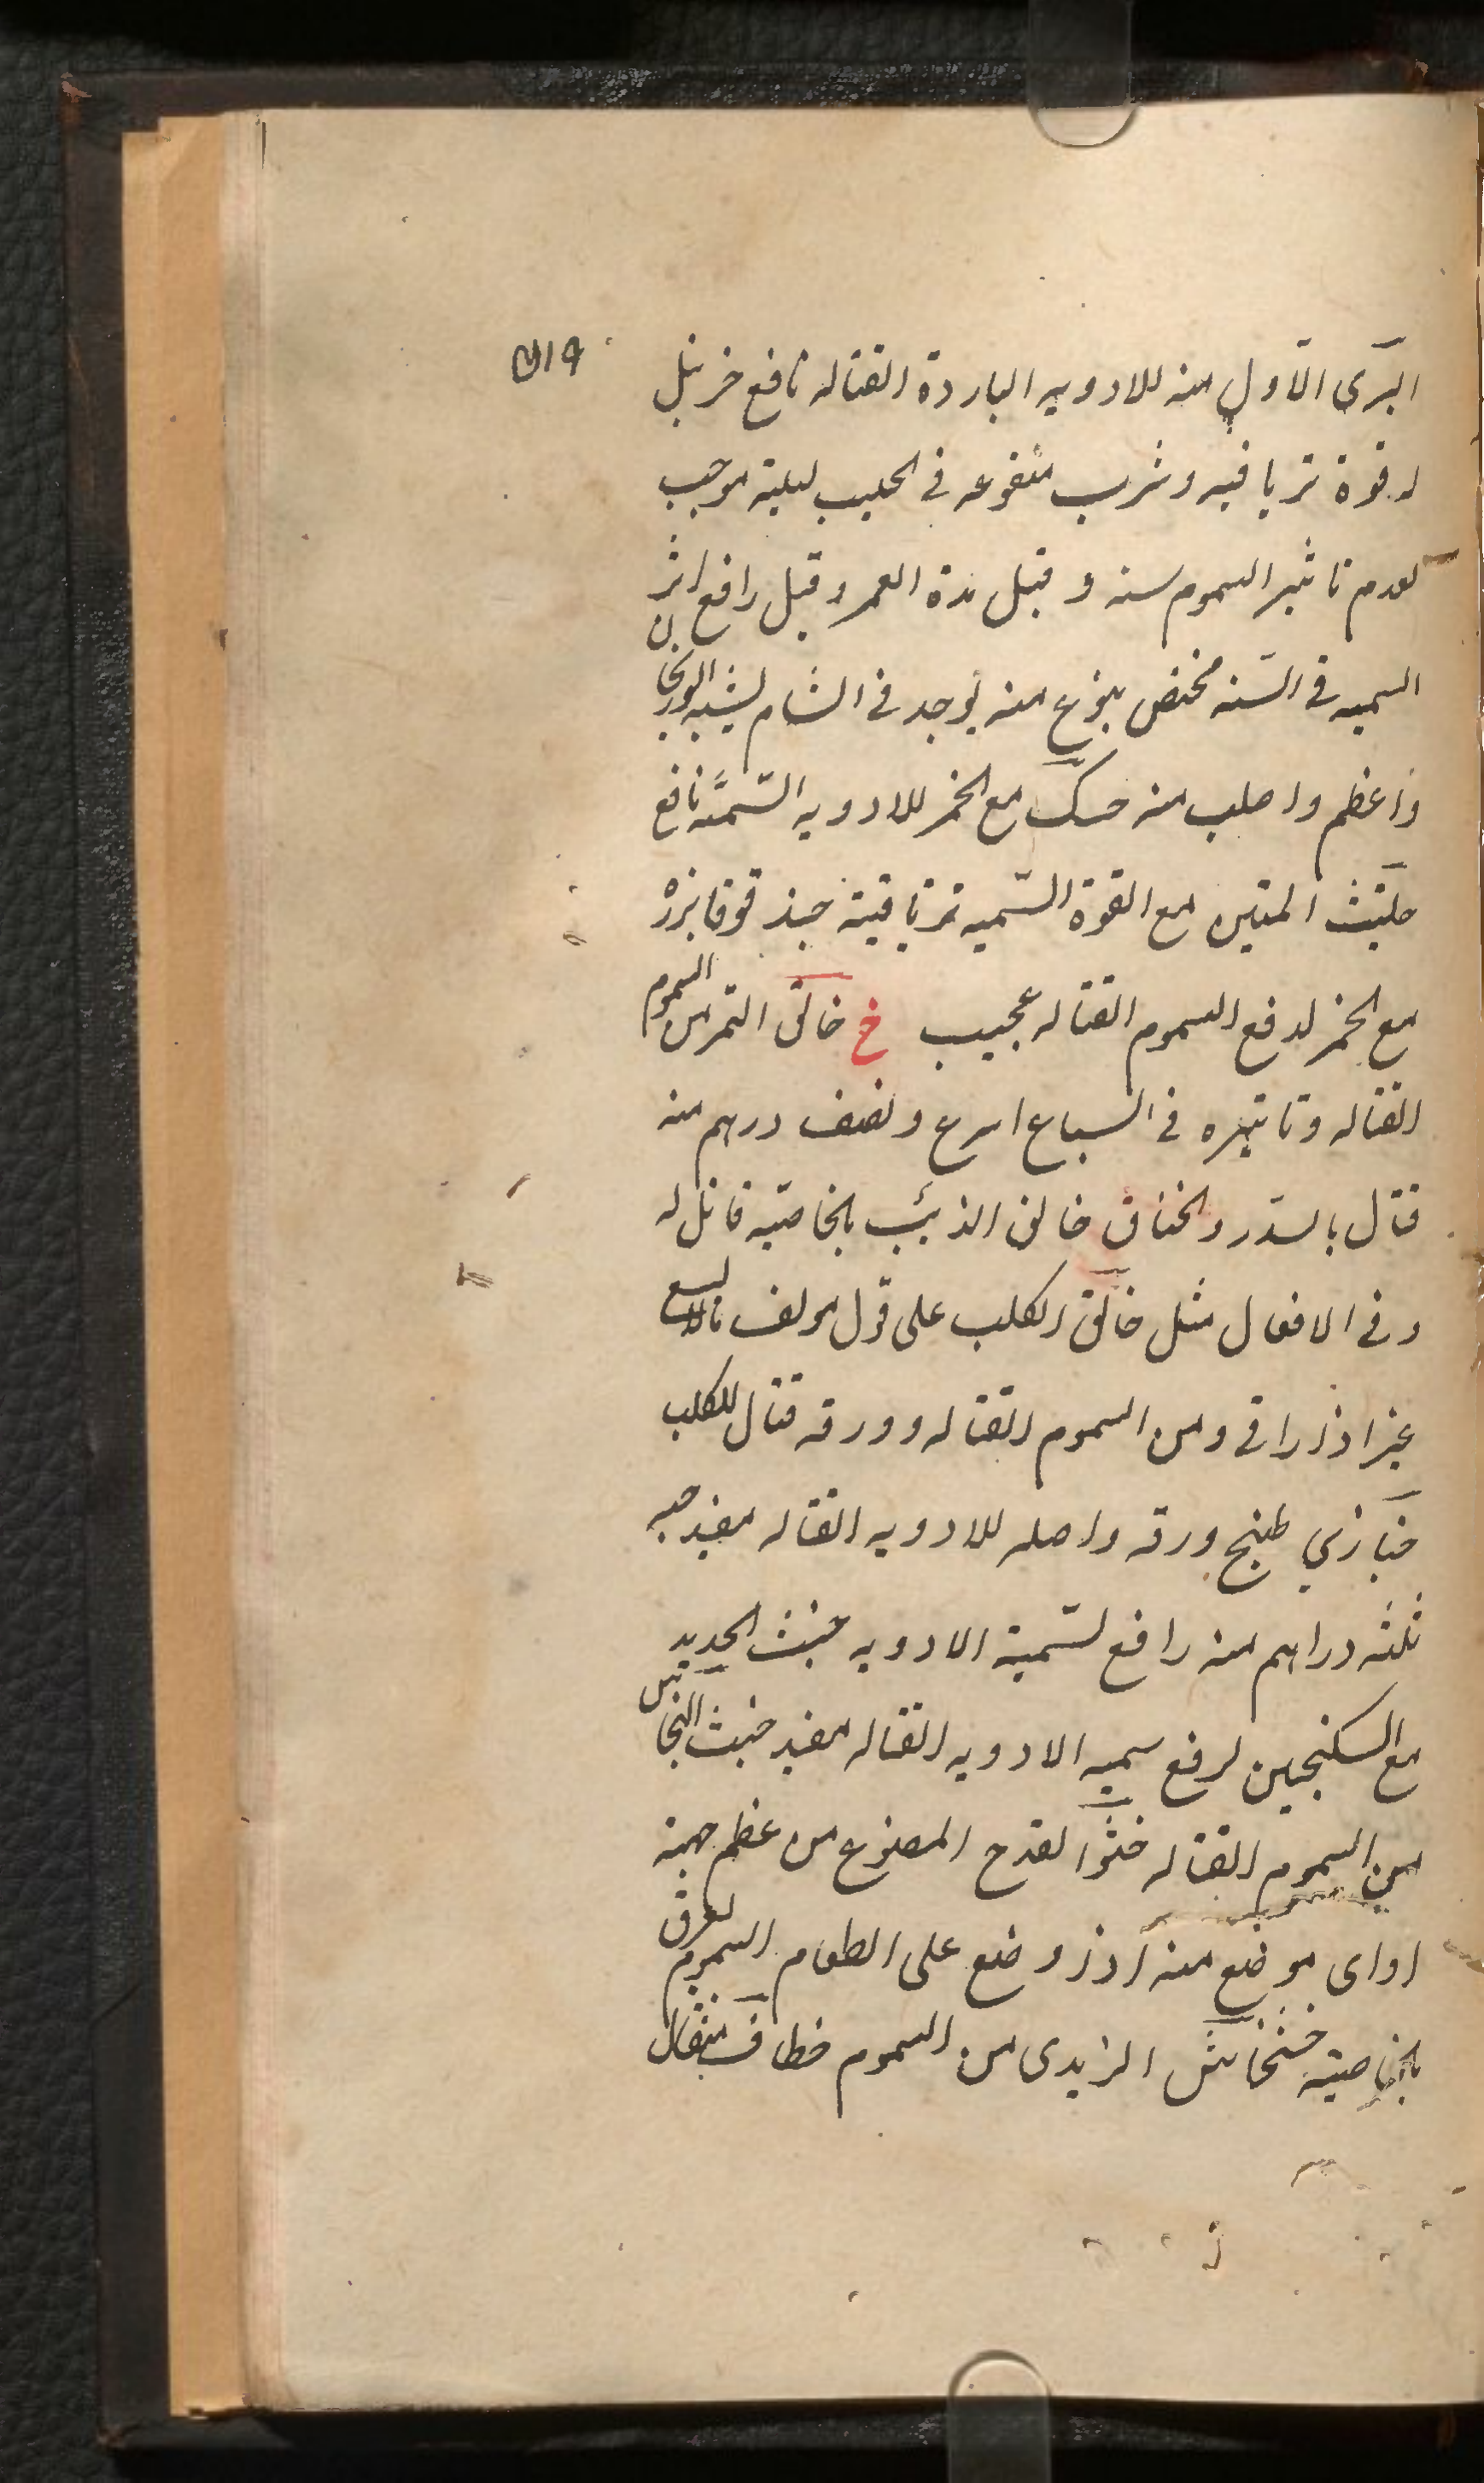 البری الاول منه للادویه الباردة القتاله نافع خرنبل
له قوة تریاقیه وشرب منقوعه فی الحلیب لیلیة موجب
لعدم تاثیر السموم سنه و قیل مدة العمر وقیل رافع اثر
السمیه فی السّنه مختص بنوع منه یوجد فی الشام یشبه
واعظم واصلب منه حسک مع الخمر للادویه السّمیّه نافع
حلتیث المنتین مع القوة السّمیه تریاقیة حندقوقا بزره
مع الخمر لدفع السموم القتاله عجیب خ خانق النمر من السموم
القتاله وتاثیره فی السباع اسرع ونصف درهم منه
قتال بالسدر والخناق خانق الذئب بالخاصیه قاتل له
وفی الافعال مثل خانق الکلب علی قول مولف مالایسع
غیر اذاراقی ومن السموم القتاله وورقه قتال للکلب
خبازی طبیخ ورقه واصله للادویه القتاله مفید حبه
ثلثه دراهم منه رافع لسّمیة الادویه خبث الحدید
مع السکنجبین لرفع سمیه الادویه القتاله مفید خبث النحاس
من السموم القتاله ختو القدح المصنوع من عظم جبهة
اوای موضع منه اذا وضع علی الطعام المسموم لعرق
بالخاصیة خشخاش الزبدی من السموم خطاف مثقال